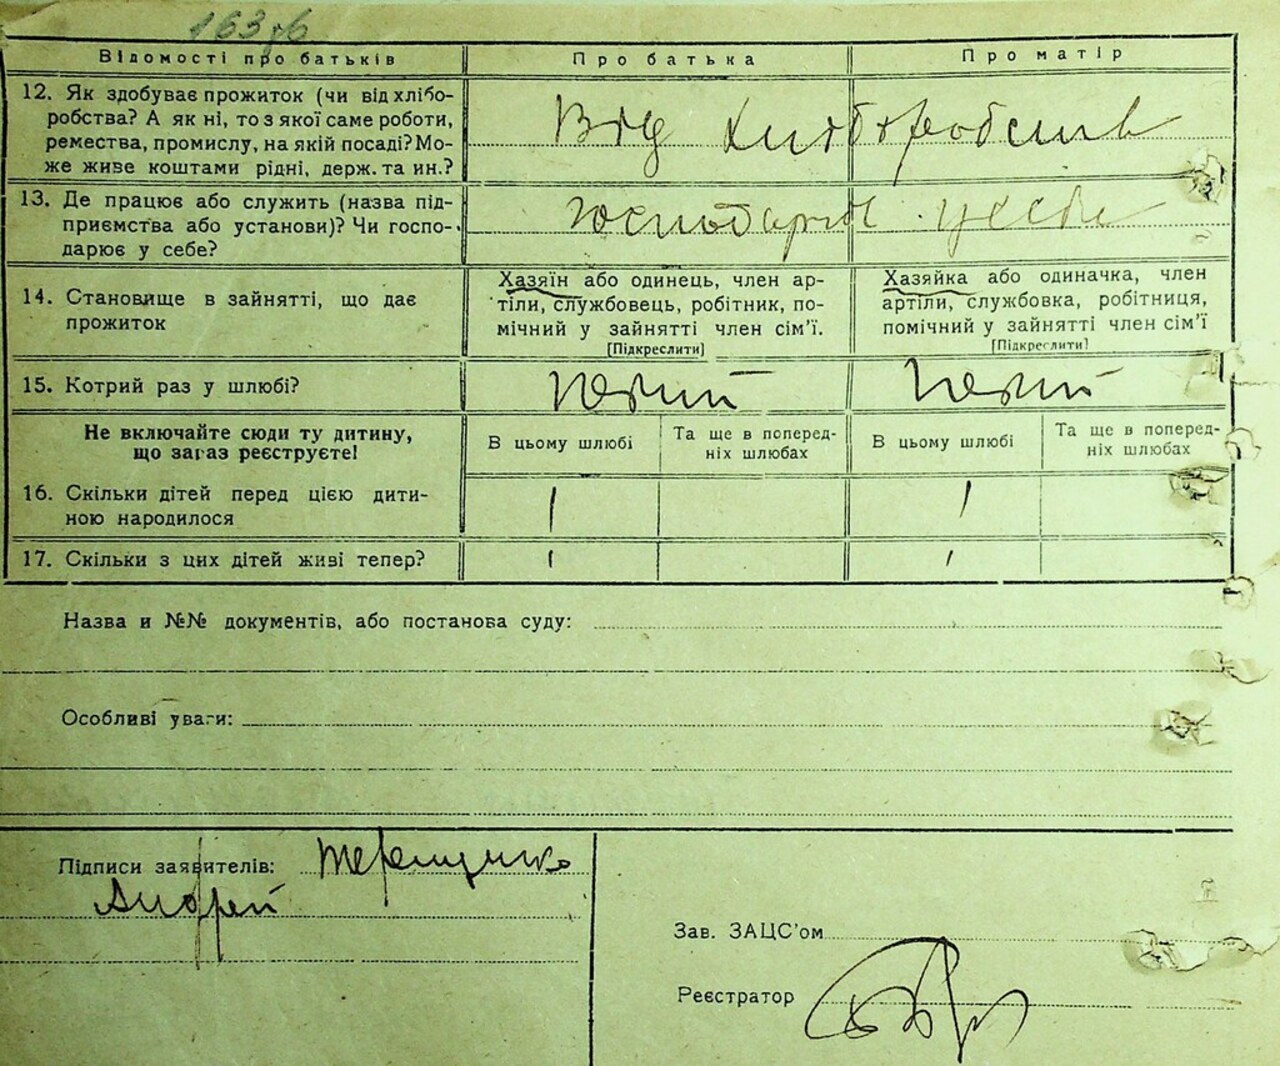 163
Відомості про батьків Про батька Про матір
12. Як здобуває прожиток (чи від хлібо-
робства? А як ні, то з якої саме роботи,
ремества, промислу, на якій посаді? Мо-
же живе коштами рідні, держ. та ин.?
Від хліборобства
13. Де працює або служить (назва під-
приємства або установи)? Чи госпо-
дарює у себе?
господарює у себе
14. Становище в зайнятті, що дає
прожиток
Хазяїн або одинець, член ар-
тіли, службовець, робітник, по-
мічний у зайнятті член сім'ї.
[Підкреслити]
Хазяйка або одиначка, член
артіли, службовка, робітниця,
помічний у зайнятті член сім'ї
[Підкреслити]
15. Котрий раз у шлюбі? Первий Первий
Не включайте сюди ту дитину,
що зараз реєструєте!
В цьому шлюбі
Та ще в поперед-
ніх шлюбах
В цьому шлюбі
Та ще в поперед-
ніх шлюбах
16. Скільки дітей перед цією дити-
ною народилося
1 1
17. Скільки з цих дітей живі тепер? 1 1
Назва и №№ документів, або постанова суду:
Особливі уваги:
Підписи заявителів: Терещенко
Андрей
Зав. ЗАЦС'ом
Реєстратор